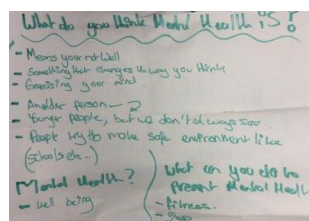 What do you think Mental Health is?
- Means your not well
- Something that changes the way you think
- your mind.
- Another person - 2
- Younger people, but we don't always see.
- People try to make safe environment like
(schools etc..)
Mental Health?
- Well being
What can you do to
prevent Mental Health
- fitness.